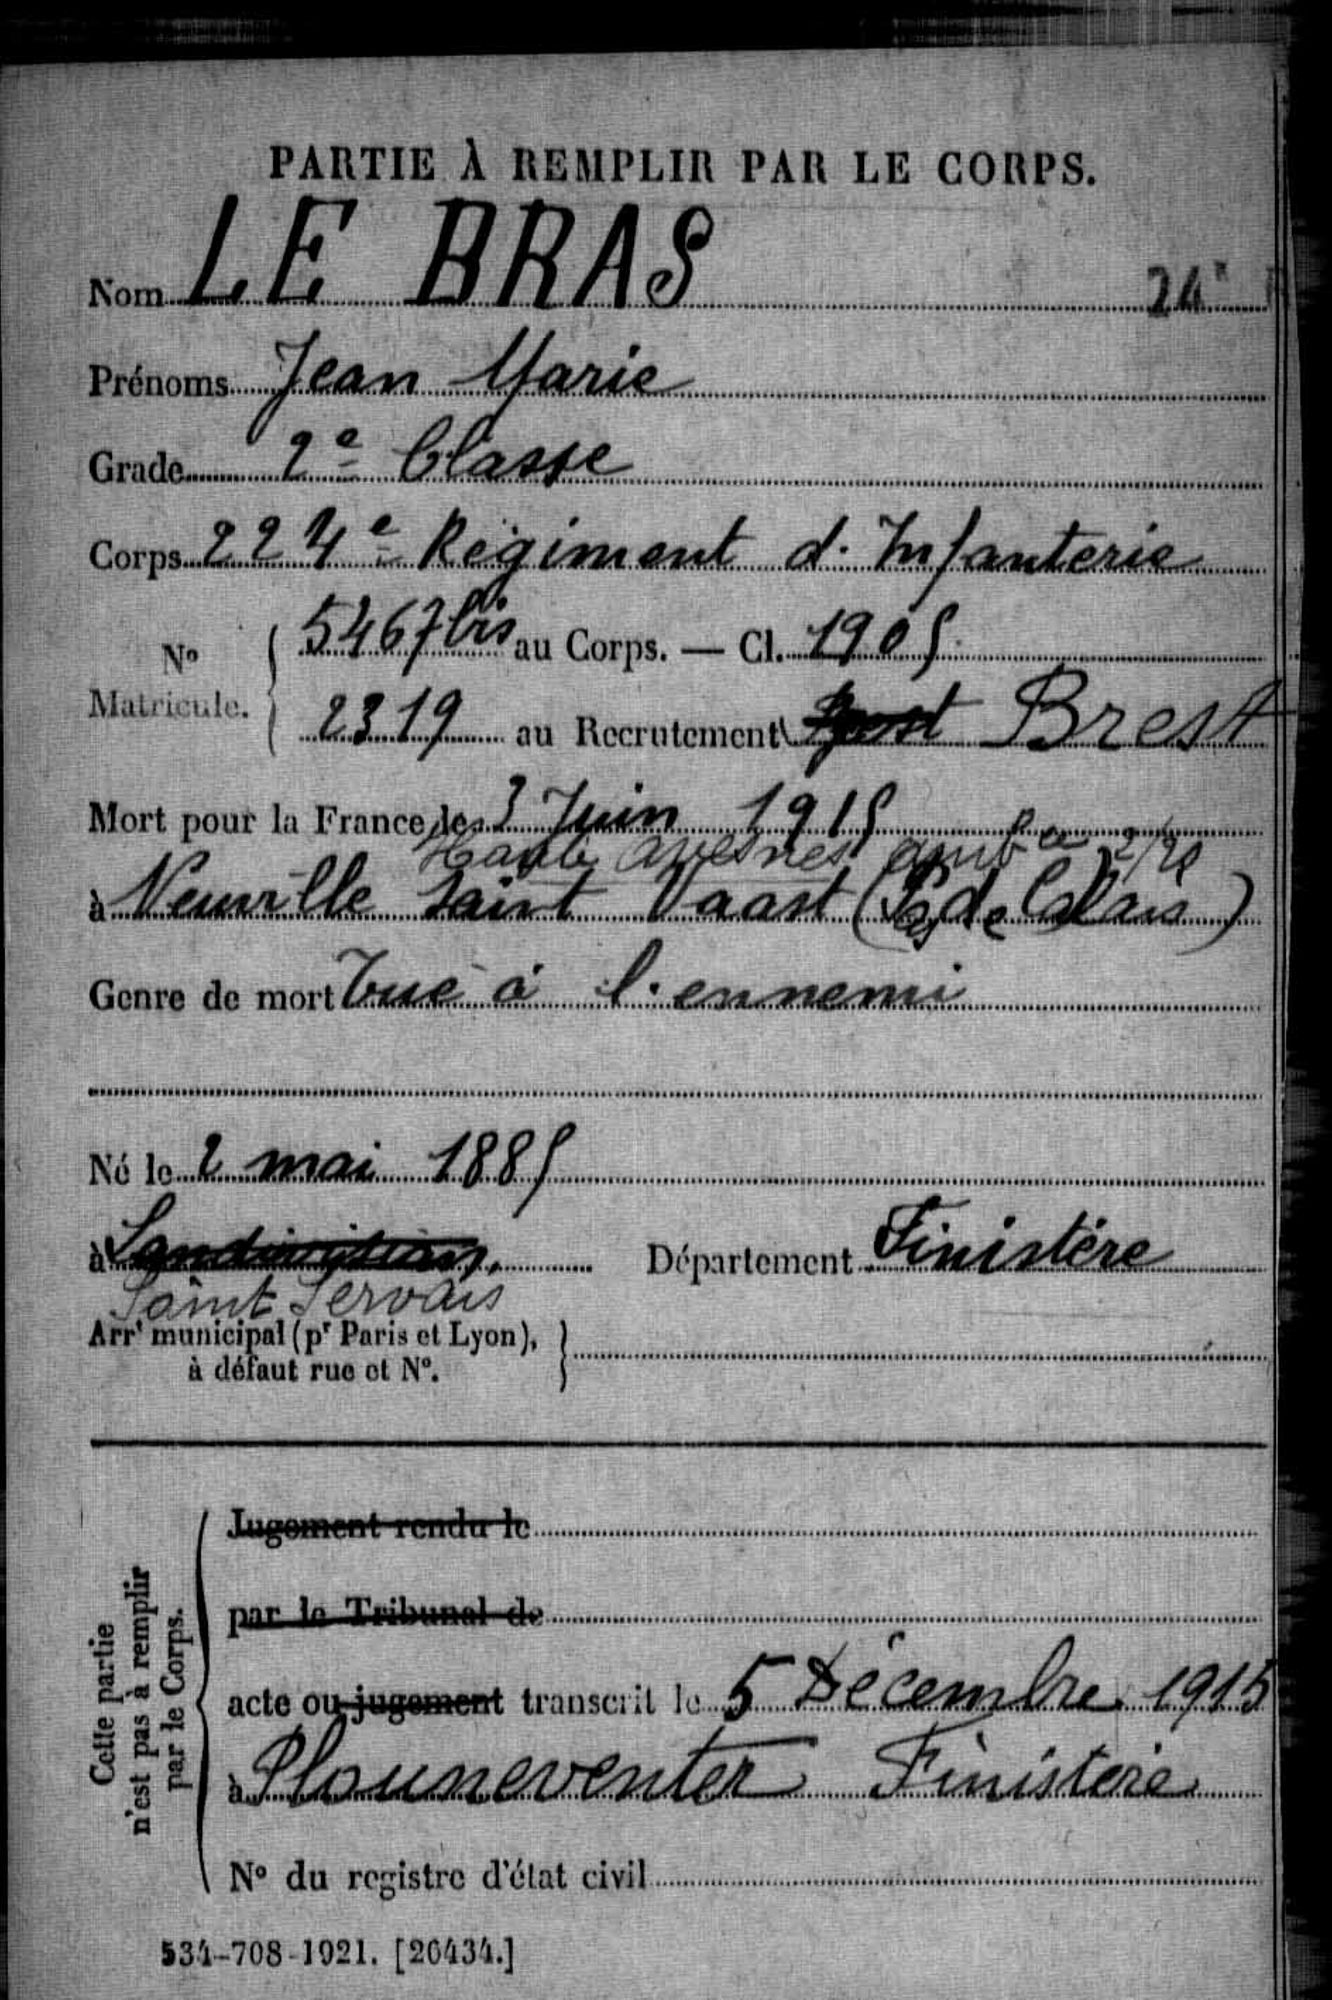 PARTIE À REMPLIR PAR LE CORPS.
Nom LE BRAS
Prénoms Jean Marie
Grade 2e Classe
Corps 224e Régiment d'Infanterie
No Matricule.
5467 bis au Corps. — Cl. 1905
2319 au Recrutement Brest Brest
Mort pour la France le 3 Juin 1915
Haute Avesnes amb ce 2/20
à Neuville Saint Vaast (Pas de Calais)
Genre de mort Tué à l'ennemi
Né le 2 mai 1885
à Département Finistère
Saint Servais
Arrt municipal (pr Paris et Lyon),
à défaut rue et No.
Cette partie
n'est pas à remplir
par le Corps.
Jugement rendu le
par le Tribunal de
acte ou jugement transcrit le 5 Décembre 1915
à Plouneventer Finistère
No du registre d'état civil
534-708-1921. [26434.]